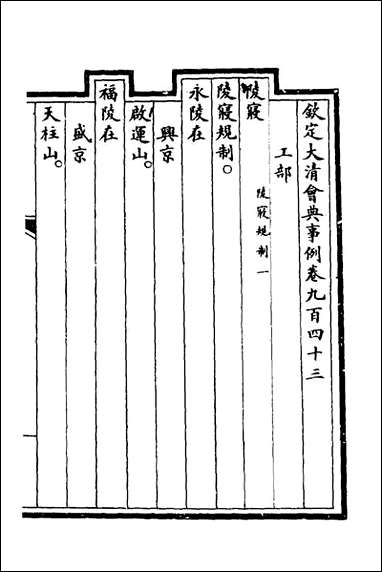 欽定大清會典事例卷九百四十三
工部
陵寢規制一
陵寢
陵寢規制。
永陵在
興京
啟運山。
福陵在
盛京
天柱山。